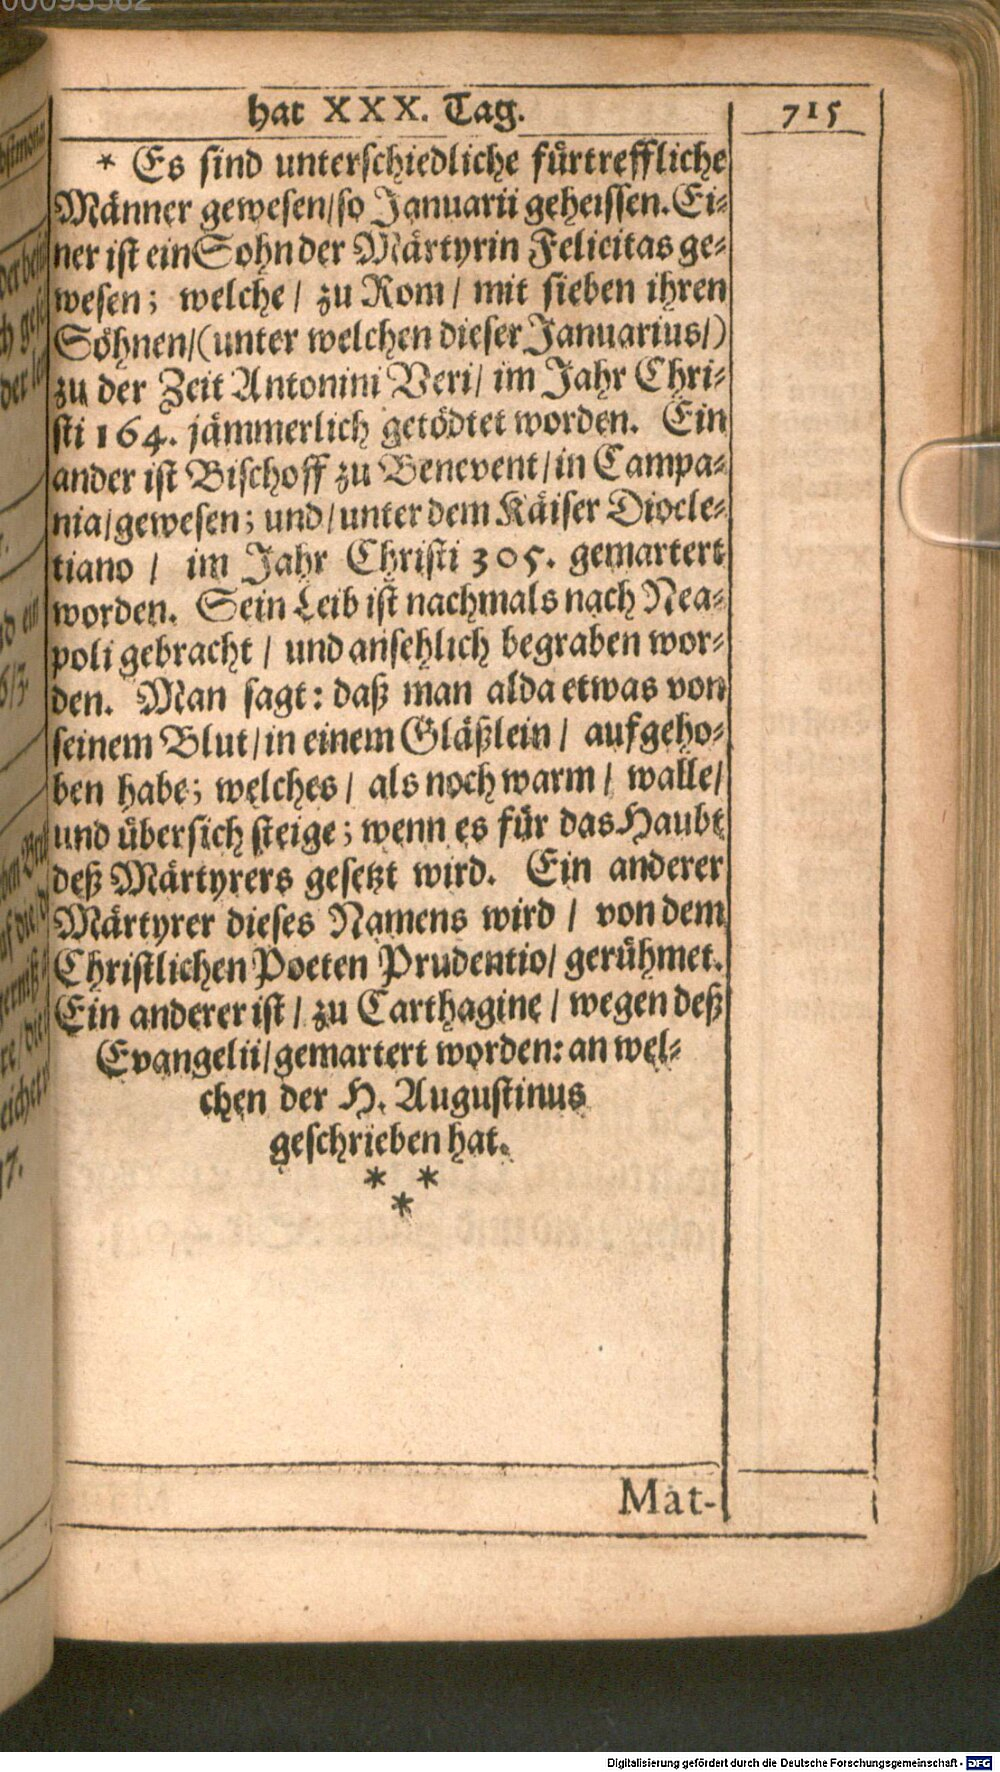 hat XXX. Tag.
715
* Es sind unterschiedliche fürtreffliche
Männer gewesen/so Januarii geheissen. Ei-
ner ist ein Sohn der Märtyrin Felicitas ge-
wesen; welche/ zu Rom/ mit sieben ihren
Söhnen/(unter welchen dieser Januarius/)
zu der Zeit Antonini Veri/ im Jahr Chri-
sti 164. jämmerlich getödtet worden. Ein
ander ist Bischoff zu Benevent/in Campa-
nia/gewesen; und/unter dem Käiser Diocle-
tiano / im Jahr Christi 305. gemartert
worden. Sein Leib ist nachmals nach Nea-
poli gebracht / und ansehlich begraben wor-
den. Man sagt: daß man alda etwas von
seinem Blut/in einem Gläßlein / aufgeho-
ben habe; welches/ als noch warm/ walle/
und übersich steige; wenn es für das Haubt
deß Märtyrers gesetzt wird. Ein anderer
Märtyrer dieses Namens wird / von dem
Christlichen Poeten Prudentio/ gerühmet.
Ein anderer ist / zu Carthagine / wegen deß
Evangelii/gemartert worden: an wel-
chen der H. Augustinus
geschrieben hat.
* *
*
Mat-
Digitalisierung gefördert durch die Deutsche Forschungsgemeinschaft - DFG